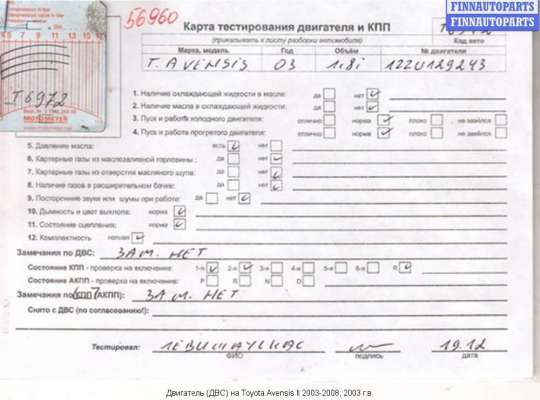 FINNAUTOPARTS
FINNAUTOPARTS
56960
T6972
MOTOMETER
Карта тестирования двигателя и КПП
(прикалывать к листу разборки автомобиля)
Код авто
Марка, модель Год Объём № двигателя
T. AVENSIS 03 1.8i 1ZZU129243
1. Наличие охлаждающей жидкости в масле: да нет
2. Наличие масла в охлаждающей жидкости: да нет
3. Пуск и работа холодного двигателя: отлично норма плохо не завёлся
4. Пуск и работа прогретого двигателя: отлично норма плохо не завёлся
5. Давление масла: есть нет
6. Картерные газы из маслозаливной горловины: да нет
7. Картерные газы из отверстия масляного щупа: да нет
8. Наличие газов в расширительном бачке: да нет
9. Посторонние звуки или шумы при работе: да нет
10. Дымность и цвет выхлопа: норма
11. Состояние сцепления: норма
12. Комплектность полная
Замечания по ДВС: ЗАМ. НЕТ
Состояние КПП - проверка на включение: 1-я 2-я 3-я 4-я 5-я 6-я R
Состояние АКПП - проверка на включение: P R N D
Замечания по КПП (АКПП): ЗАМ. НЕТ
Снято с ДВС (по согласованию!):
Тестировал: ЛЕВИШАУСКАС 19.12
ФИО подпись дата
Двигатель (ДВС) на Toyota Avensis II 2003-2008, 2003 г.в.